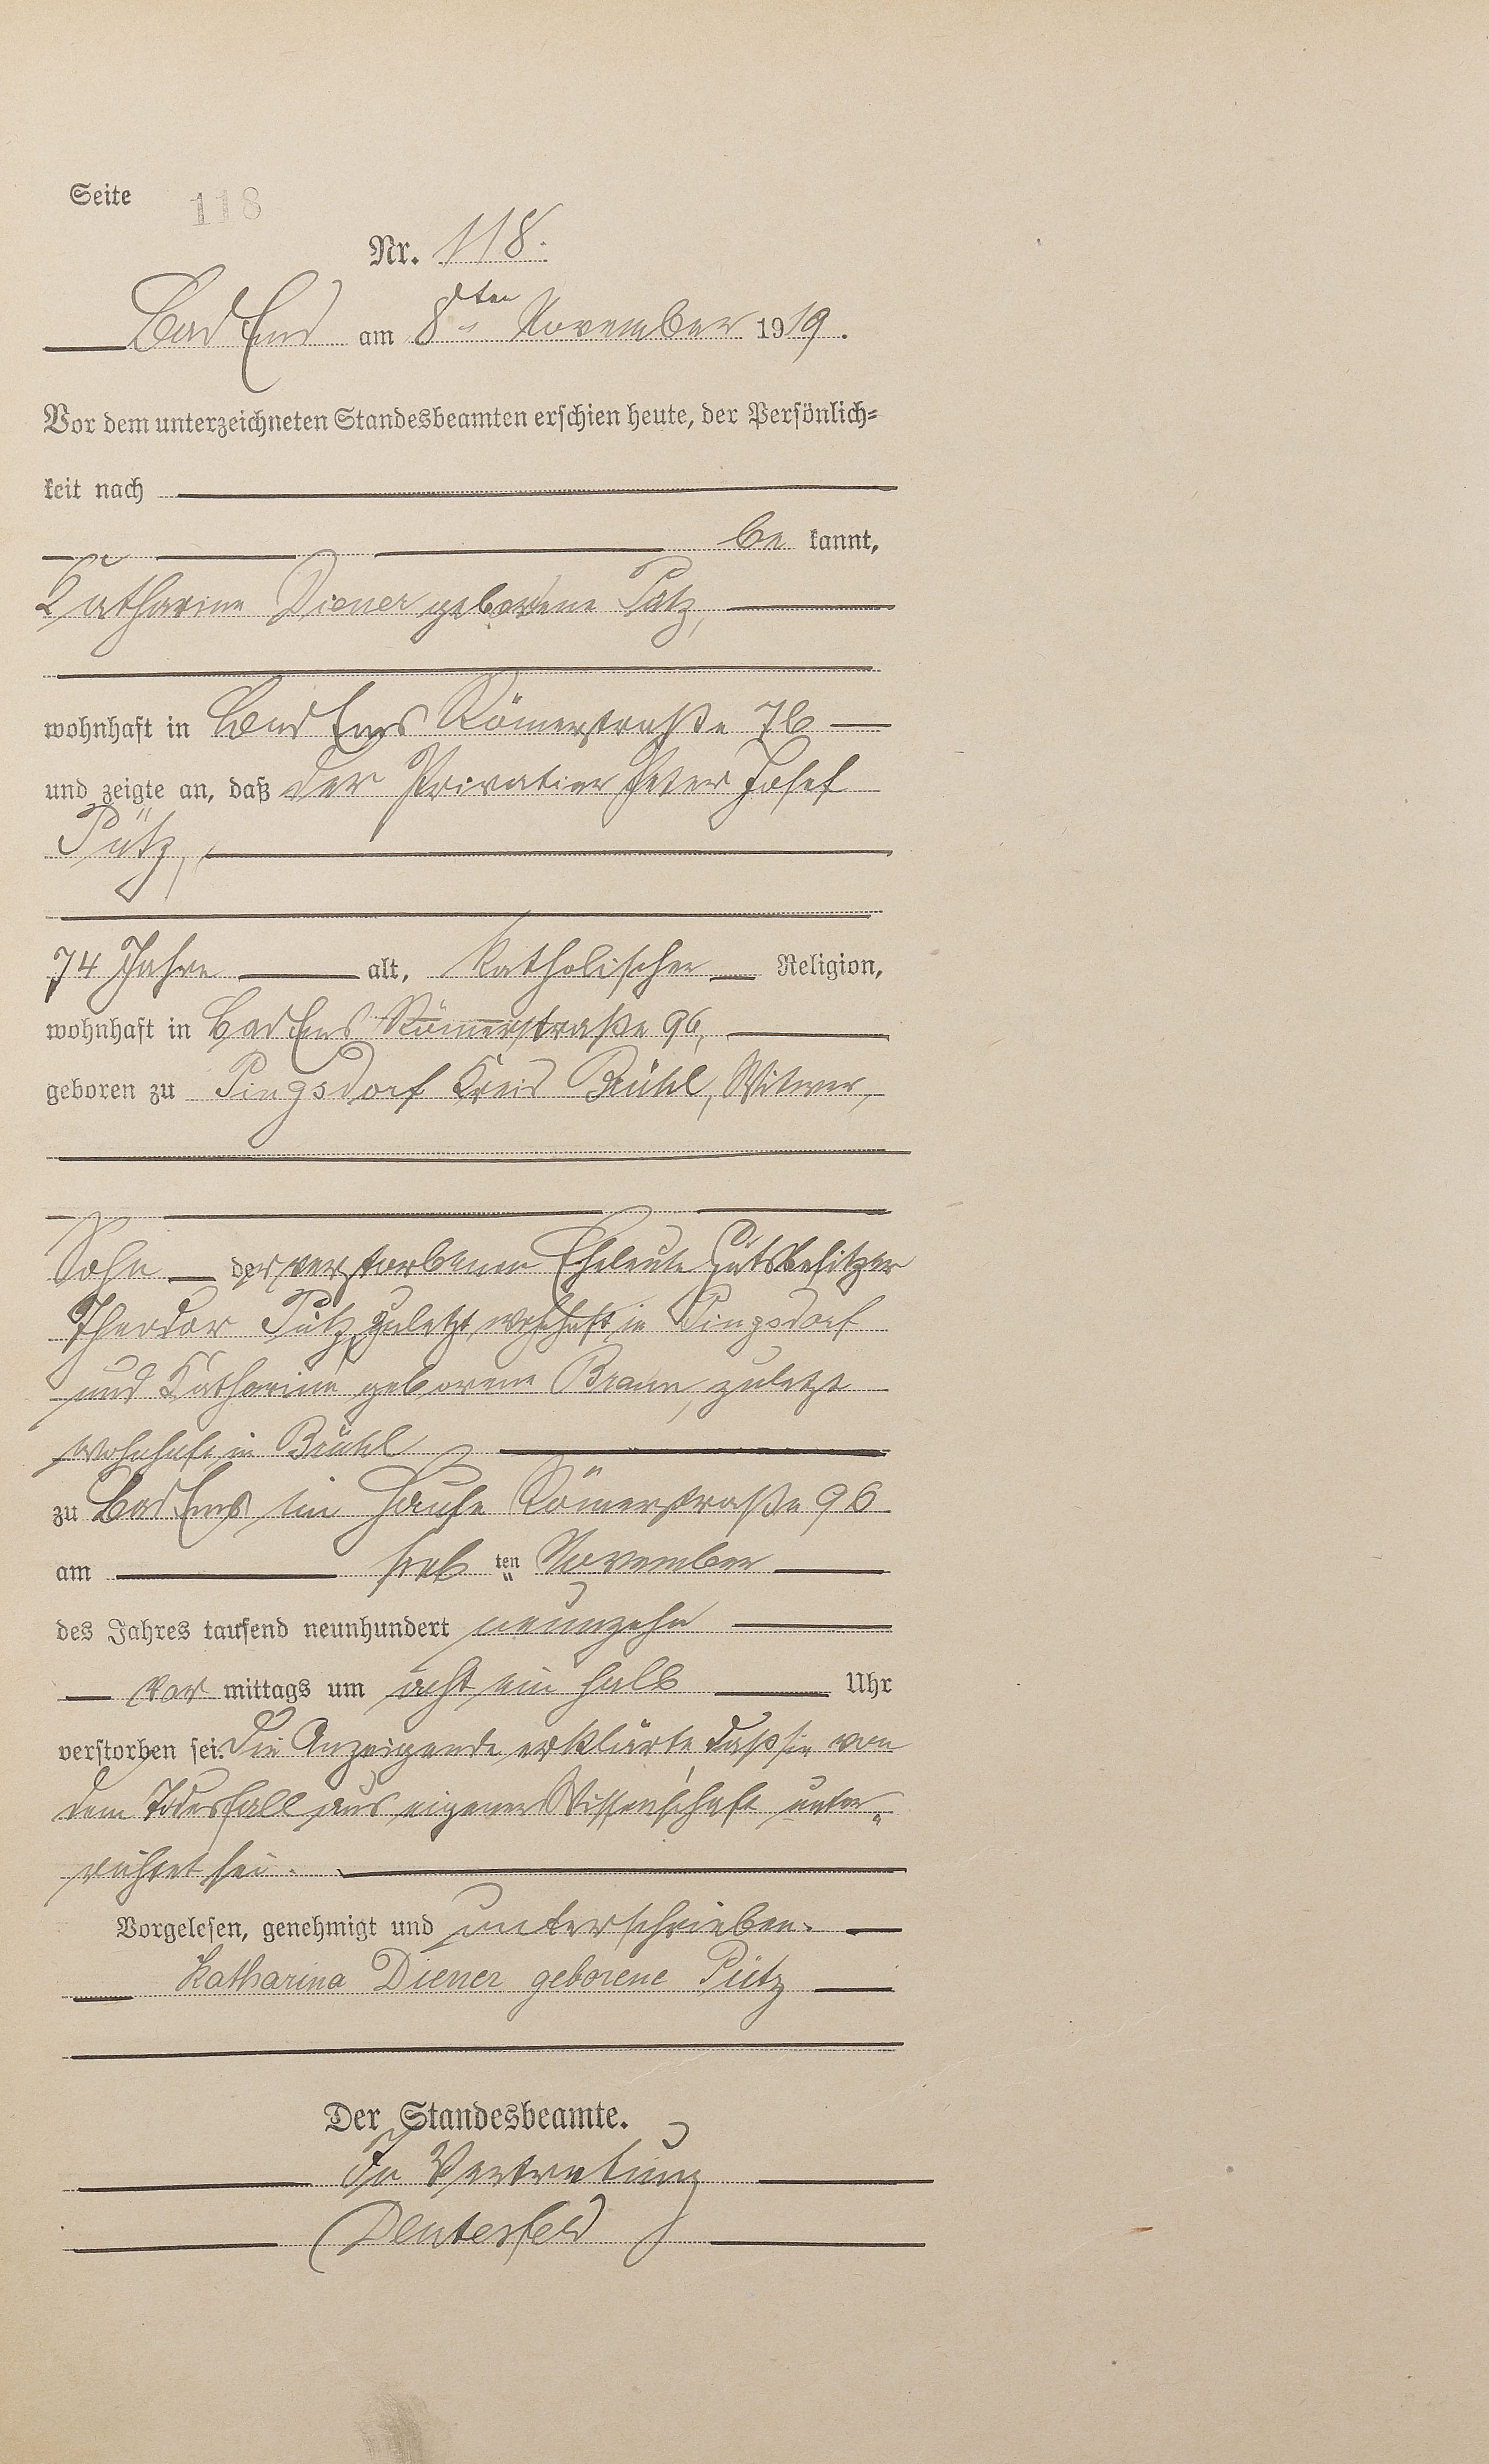 Seite 118
Nr. 118.
Bad Ems am 8ten November 1919.
Vor dem unterzeichneten Standesbeamten erschien heute, der Persönlich=
keit nach
be kannt,
Katharina Diener geborene Pütz,
wohnhaft in Bad Ems Römerstraße 76
und zeigte an, daß der Privatier Peter Josef
Pütz,
74 Jahre alt, katholischer Religion,
wohnhaft in Bad Ems Römerstraße 96,
geboren zu Pingsdorf Kreis Brühl, Witwer,
Sohn der verstorbenen Eheleute Gutsbesitzer
Theodor Pütz, zuletzt wohnhaft in Pingsdorf
und Katharina geborene Braun, zuletzt
wohnhaft in Brühl
zu Bad Ems im Hause Römerstraße 96
am ten November
des Jahres tausend neunhundert neunzehn
vor mittags um acht ein halb Uhr
verstorben sei. Die Anzeigende erklärte, daß sie von
dem Todesfall aus eigener Wissenschaft unter=
richtet sei.
Vorgelesen, genehmigt und unterschrieben.
Katharina Diener geborene Pütz
Der Standesbeamte.
In Vertretung